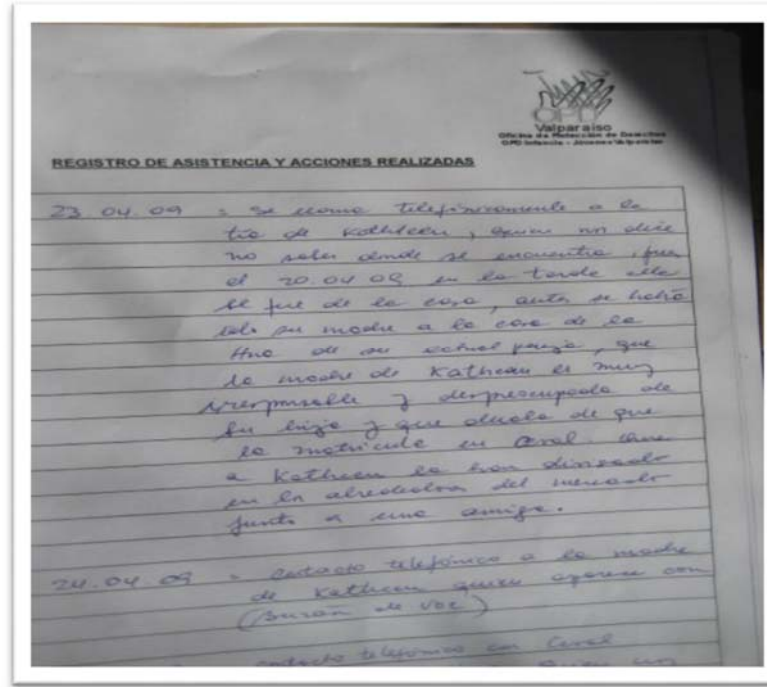 OPD
Valparaiso
Oficina de Protección de Derechos
OPD Infancia - Jóvenes Valparaíso
REGISTRO DE ASISTENCIA Y ACCIONES REALIZADAS
23.04.09 : Se llama telefónicamente a la
tía de Kathleen, quien nos dice
no saber donde se encuentra, pues
el 20.04.09 en la tarde ella
se fue de la casa, antes se había
ido su madre a la casa de la
Hna de su actual pareja, que
la madre de Kathleen es muy
irresponsable y despreocupada de
su hija y que duda de que
la matricule en Ceval. Que
a Kathleen la han divisado
en los alrededores del mercado
junto a una amiga.
24.04.09 : Contacto telefónico a la madre
de Kathleen quien aparece con
(Buzón de voz)
contacto telefónico con Ceval
quien